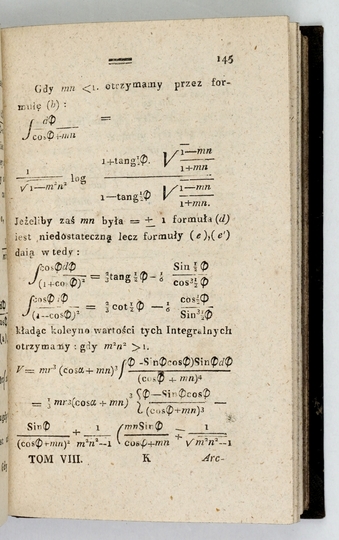 145
Gdy mn <1. otrzymamy przez for-
mułę (h) :
∫ dΦ / cosΦ+mn =
1 / √1—m²n² log 1+tang½Φ. √ 1—mn / 1+mn / 1—tang½Φ √ 1—mn / 1+mn.
Jeżeliby zaś mn była = ± 1 formuła (d)
iest niedostateczną lecz formuły (e),(e')
daią wtedy :
∫ cosΦdΦ / (1+cosΦ)² = ⅔ tang ½Φ - ⅙ Sin ½Φ / cos³½Φ
∫ cosΦ dΦ / (1—cosΦ)² = ⅔ cot ½Φ — ⅙ cos½Φ / Sin³½Φ
kładąc koleyno wartości tych Integralnych
otrzymamy : gdy m²n² >1.
V= mr³ (cosα + mn)³ ∫ (Φ -SinΦcosΦ)SinΦdΦ / (cosΦ + mn)⁴
= ⅓ mr³(cosα + mn)³ { Φ—SinΦcosΦ / (cosΦ+mn)³ —
SinΦ / (cosΦ+mn)² + 1 / m²n²—1 ( mnSinΦ / cosΦ+mn + 1 / √m²n²—1
TOM VIII. K Arc-